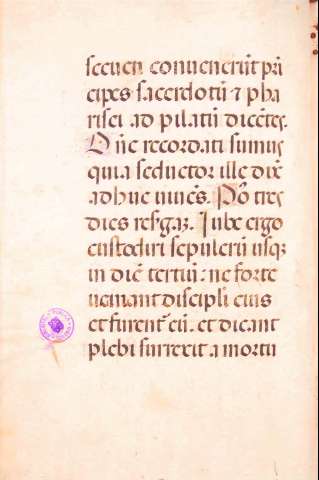 sceuen conuenerūt prī
cipes sacerdotū ⁊ pha
risei ad pilatū dicētes.
Dñe recordati sumus
quia seductor ille dix̄
adhuc uiuēs. Pō tres
dies resgaʒ. Jube ergo
custodiri sepulcrū usqʒ
in diē tertiū: ne forte
ueniant discipĺi eius
et furent̄ eū. et dicant
plebi surrexit a mortu